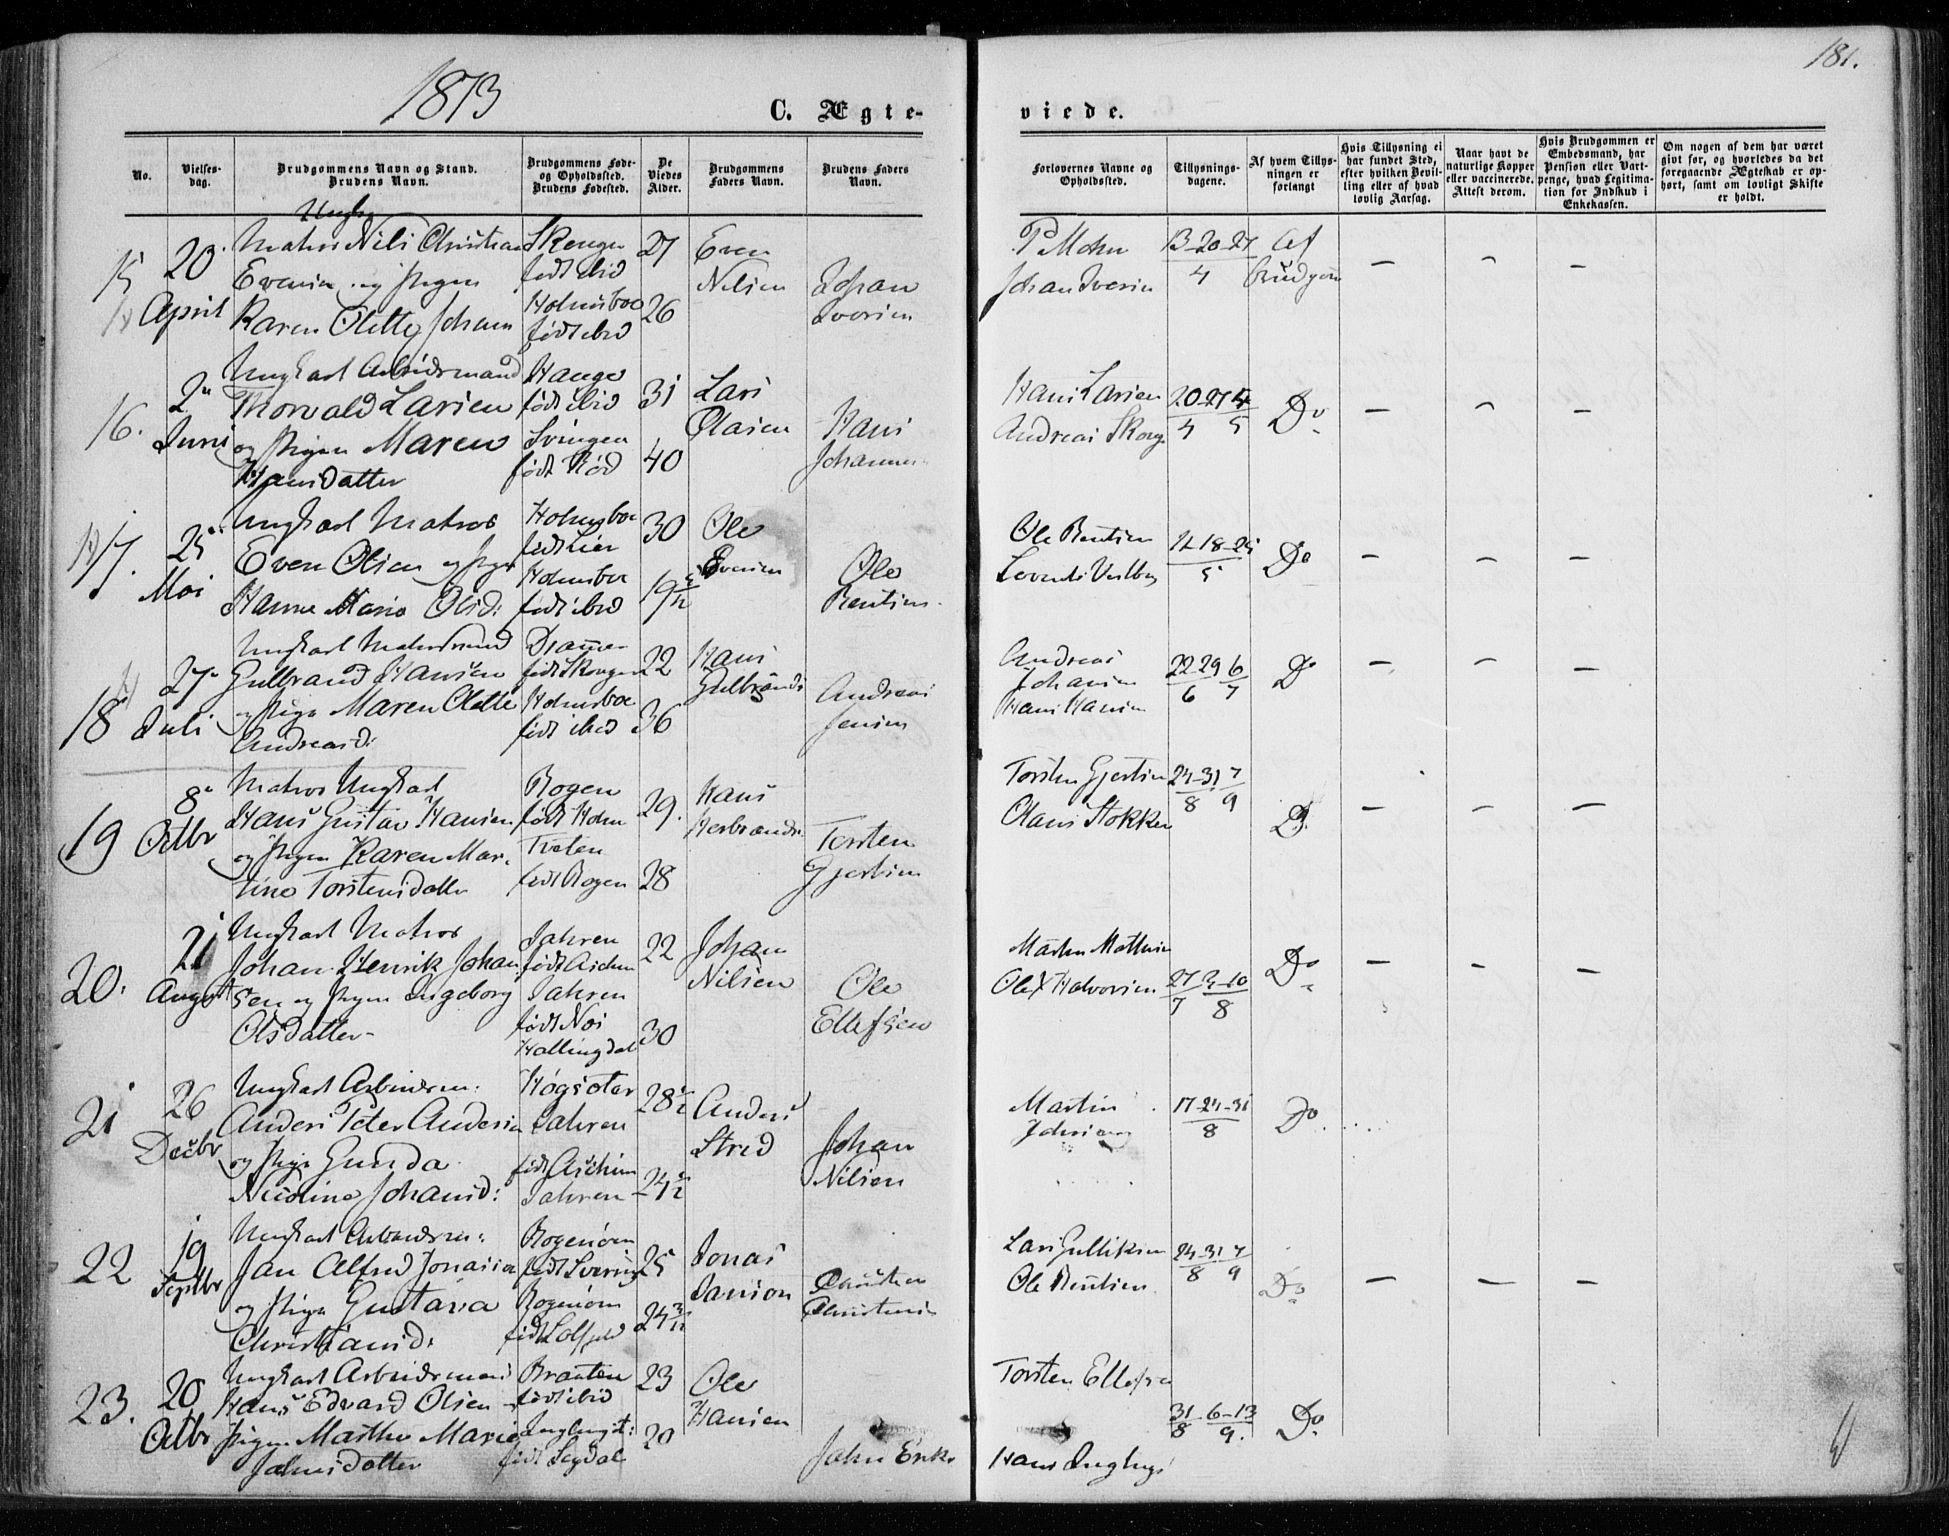 181.
1873
C. Ægte- viede.
No.
Vielses-dag.
Brudgommens Navn og Stand. Brudens Navn.
Brudgommens Føde- og Opholdssted. Brudens Fødested.
De Viedes Alder.
Brudgommens Faders Navn.
Brudens Faders Navn.
Forlovernes Navne og Opholdssted.
Tillysnings-dagene.
Af hvem Tillysningen er forlangt
Hvis Tillysning ei har fundet Sted, efter hvilken Bevilling eller af hvad lovlig Aarsag.
Naar havt de naturlige Kopper eller vaccinerede. Attest derom.
Hvis Brudgommen er Embedsmand, har Pension eller Vartpenge, hvad Legitimation for Indskud i Enkekassen.
Om nogen af dem har været givt før, og hvorledes da det foregaaende Ægteskab er ophørt, samt om lovligt Skifte er holdt.
15
20 April
Matros Nils Christian
Evensen og Pigen
Karen Olette Johans
født ibid
Holmsboe
født ibid
27
26
Even
Nilsen
Johan
Iversen
P Mohn
Johan Iversen
13-20-27
4
Af Brudgom
— — —
16.
2 Juni
Ungkarl Arbeidsmand
Thorvald Larsen
og Pigen Maren
Hansdatter
Hauge
født ibid
Svingen
født Rød
31
40
Lars
Olasen
Hans
Johannes
Hans Larsen
Andreas Skoug
20-27 4
4 5
Do
— — —
17.
25 Mai
Ungkarl Matros
Even Olsen og Pigen
Hanne Maria Olsd:
Holmsboe
født Lier
Holmsboe
født ibid
30
19
Ole
Evensen
Ole
Bentsen
Ole Bentsen
11-18-25
5
Do
— — —
18
27 Juli
Ungkarl
Gulbrand Hansen
og Pigen Maren Olette
Andreasd:
Drammen
født Skougen
Holmsboe
født ibid
22
36
Hans
Gulbrands
Andreas
Jensen
Andreas
Johansen
Hans Hansen
22 29 6
6 7
Do
— — —
19
8 Octbr
Matros Ungkarl
Hans Gustav Hansen
og Pigen Karen Mar-
tine Torstensdatter
Rogen
født Holm
Tveten
født Rogen
29.
28
Hans
Herbrands
Torsten
Gjertsen
Torsten Gjertsen
Olaus Stokker
24-31 7
8 9
Do
— — —
20.
21 August
Ungkarl Matros
Johan Henrik Johan-
sen og Pigen Ingeborg
Olsdatter
Sahren
født Aschim
Sahren
født Næs
Hallingdal
22
30
Johan
Nilsen
Ole
Ellefsen
Morten Mathisen
Ole Halvorsen
27 3-10
7 8
Do
— — —
21
26 Decbr
Ungkarl Arbeidsm.
Anders Peter Andersen
og Pige Gunda
Nicoline Johansd:
Sahren
født Aschim
Sahren
28
24
Anders
Johan
Nilsen
Martin
17-24-31
8
Do
22
19 Septbr
Ungkarl Arbeidsm:
Jan Alfred Jonassen
og Pige Gustava
Christiansd:
Rogenøen
født Sverrig
Rogenøen
25
24
Jonas
Christen
Christens
Lars Gulliksen
Ole Bentsen
24-31 7
8 9
Do
— — —
23.
20 Octbr
Ungkarl Arbeidsmand
Hans Edvard Olsen
Pigen Marthe Marie
Johnsdatter
Braaten
født ibid
født Sigdal
23
20
Ole
Hansen
John Eriks
Torsten Ellefsen
31 6-13
8 9.
Do